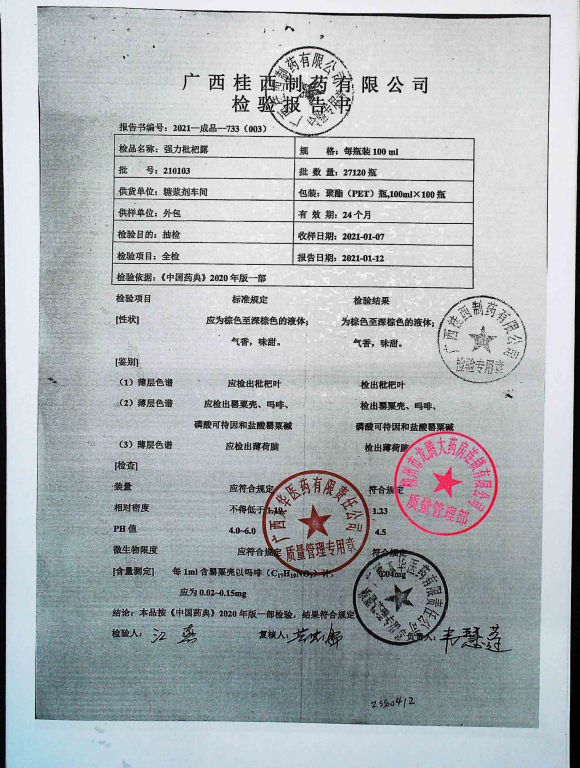 广西桂西制药有限公司
检验报告书
报告书编号：2021—成品—733（003）
检品名称：强力枇杷露 规 格：每瓶装 100 ml
批 号：210103 批 数 量：27120 瓶
供货单位：糖浆剂车间 包装：聚酯（PET）瓶,100ml×100 瓶
供样单位：外包 有 效 期：24 个月
检验目的：抽检 收样日期：2021-01-07
检验项目：全检 报告日期：2021-01-12
检验依据：《中国药典》2020 年版一部
检验项目 标准规定 检验结果
[性状] 应为棕色至深棕色的液体； 为棕色至深棕色的液体；
气香，味甜。 气香，味甜。
[鉴别]
（1）薄层色谱 应检出枇杷叶 检出枇杷叶
（2）薄层色谱 应检出罂粟壳、吗啡、 检出罂粟壳、吗啡、
磷酸可待因和盐酸罂粟碱 磷酸可待因和盐酸罂粟碱
（3）薄层色谱 应检出薄荷脑 检出薄荷脑
[检查]
装量 应符合规定 符合规定
相对密度 不得低于 1.19 1.23
PH 值 4.0~6.0 4.5
微生物限度 应符合规定 符合规定
[含量测定] 每 1ml 含罂粟壳以吗啡（C₁₇H₁₉NO₃）计， 04mg
应为 0.02~0.15mg
结论：本品按《中国药典》2020 年版一部检验，结果符合规定
检验人：江燕 复核人： 负责人：韦慧莲
广西桂西制药有限公司
检验专用章
龙腾大药房连锁有限公司
质量管理部
华医药有限责任公司
质量管理专用章
2500412